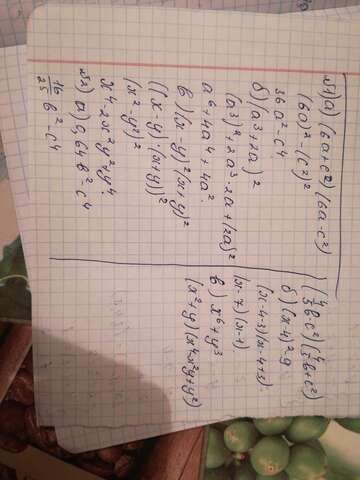 №1 а) (6a+c²)(6a-c²)
(6a)²-(c²)²
36a²-c⁴
б) (a³+2a)²
(a³)²+2a³·2a+(2a)²
a⁶+4a⁴+4a²
в) (x-y)²(x+y)²
((x-y)·(x+y))²
(x²-y²)²
x⁴-2x²y²+y⁴
№2) а) 0,64b²-c⁴
16/25 b²-c⁴
(4/5 b-c²)(4/5 b+c²)
б) (x-4)²-9
(x-4-3)(x-4+3)
(x-7)(x-1)
в) x⁶+y³
(x²+y)(x⁴-x²y+y²)